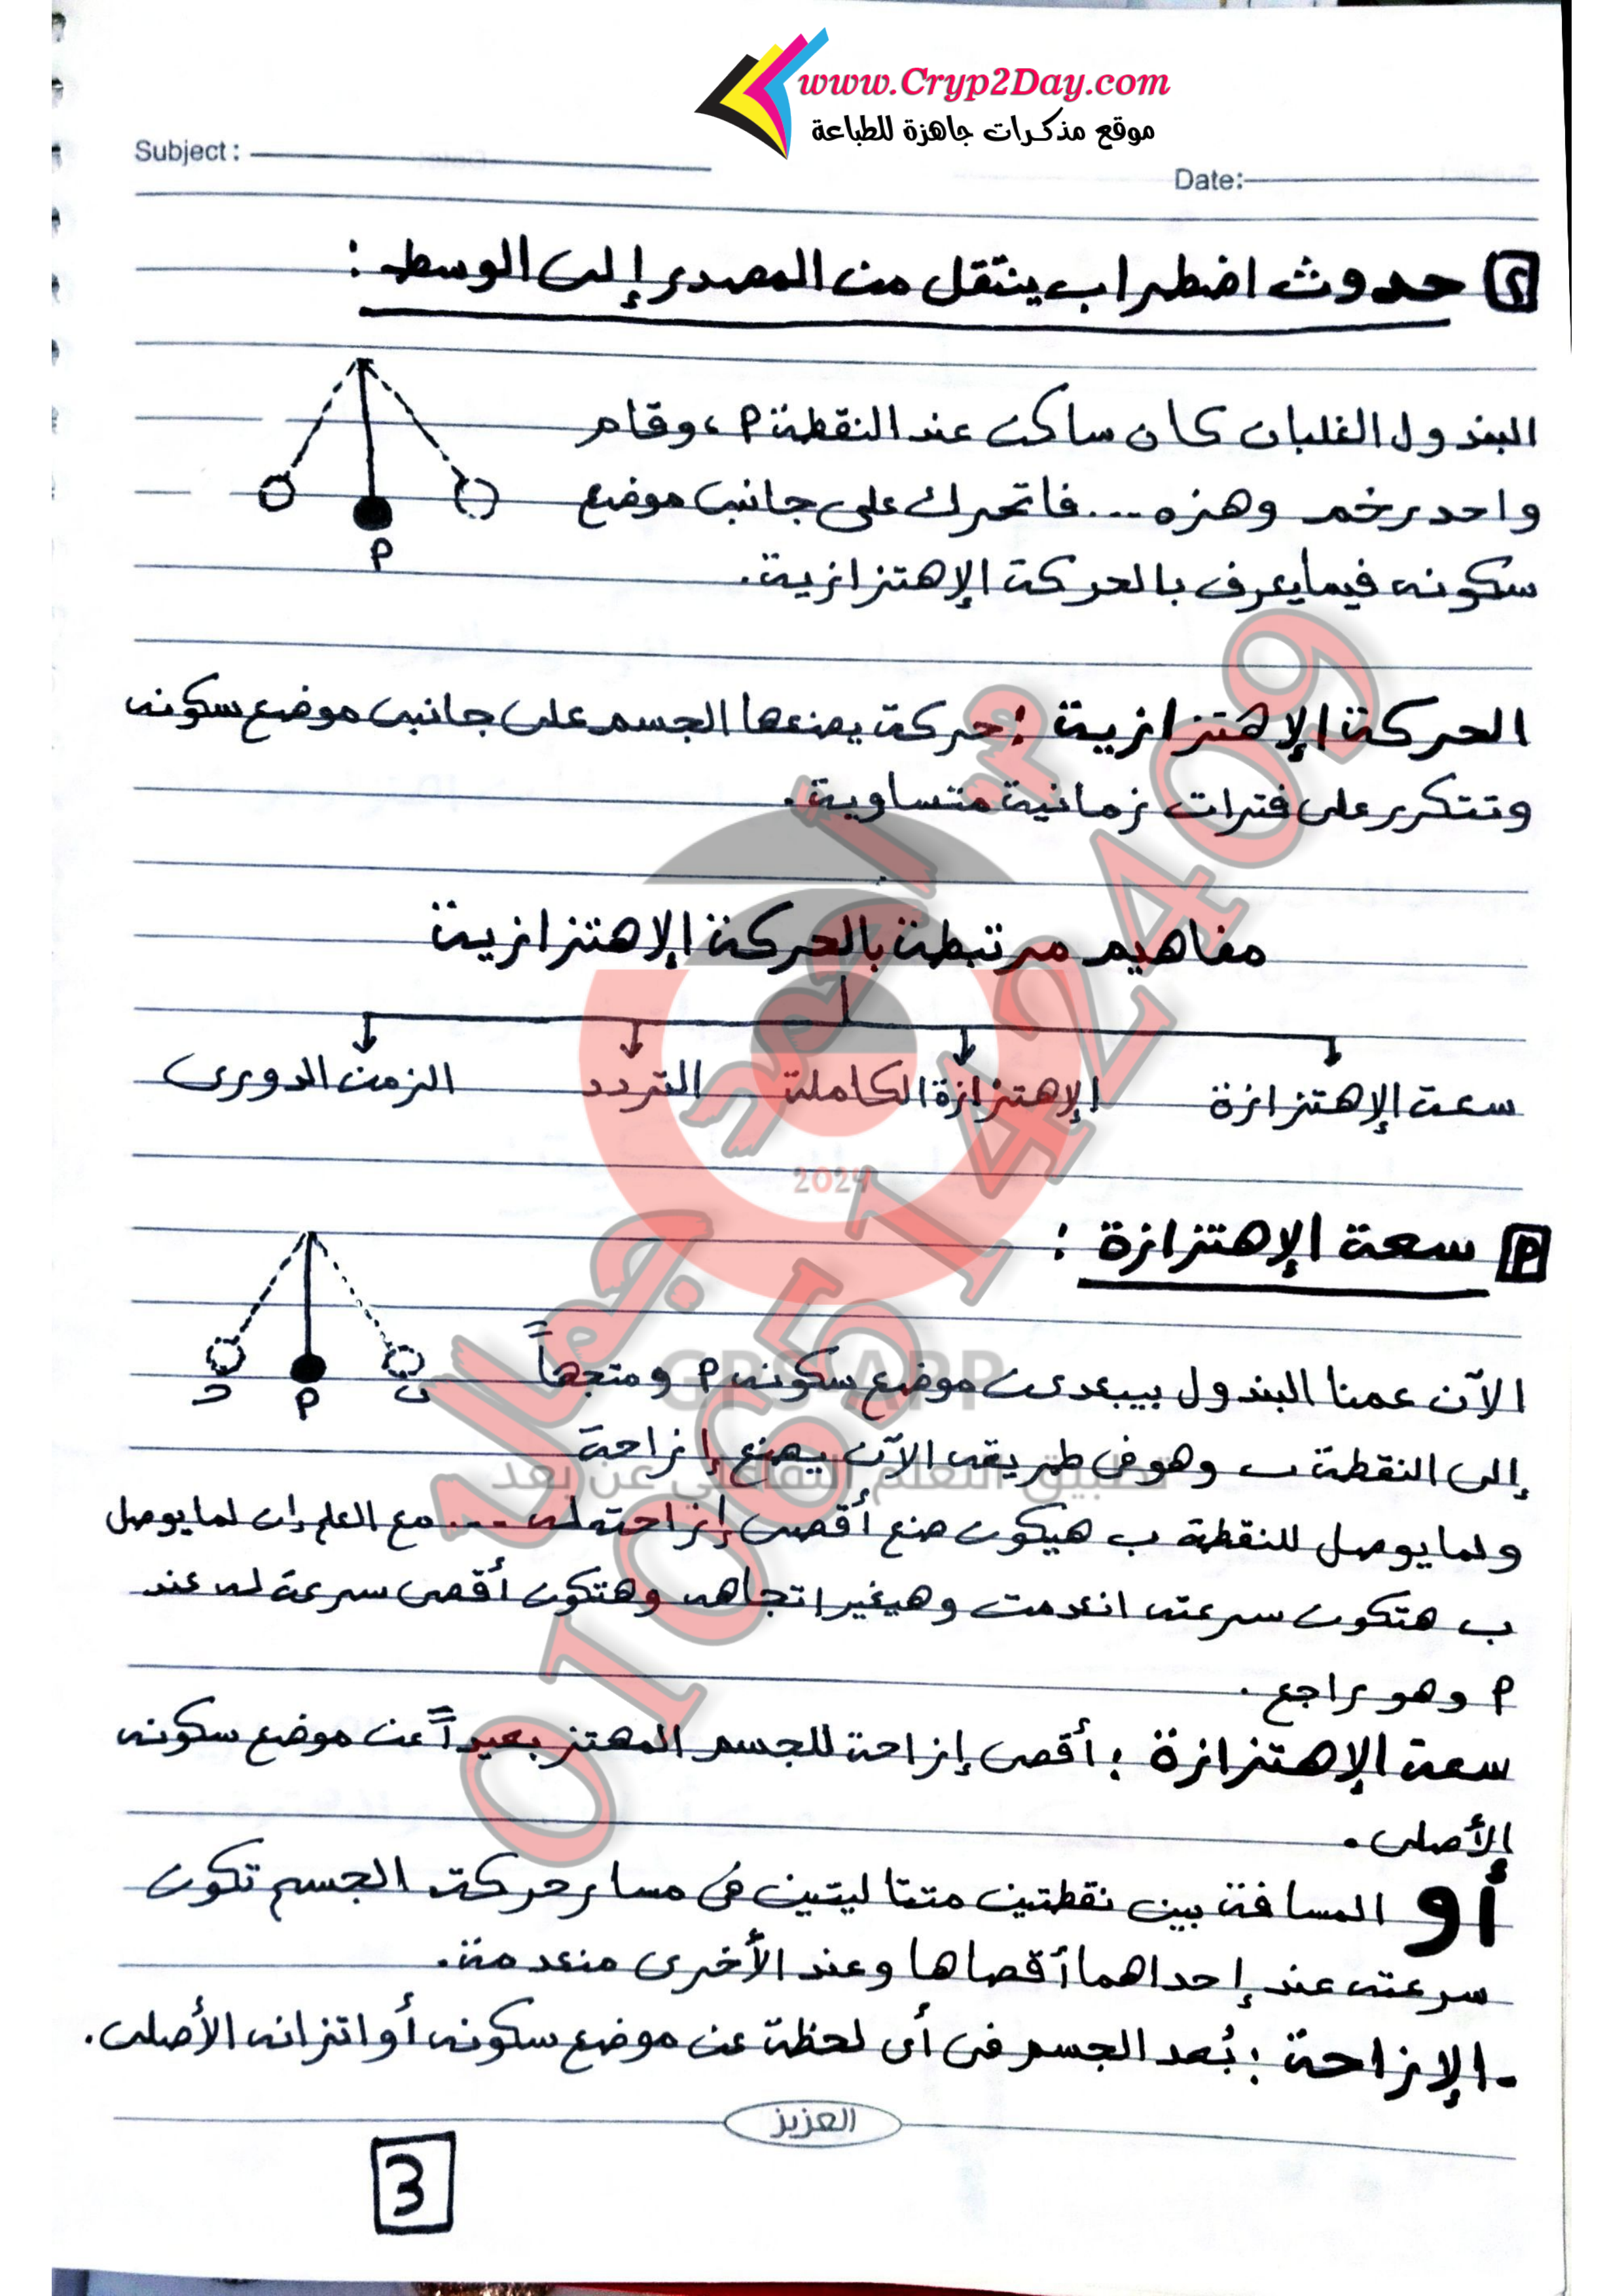 www.Cryp2Day.com
موقع مذكرات جاهزة للطباعة
Subject :
Date:
٢ حدوث اضطراب ينتقل من المصدر إلى الوسط :
البندول الغلبان كان ساكن عند النقطة م ، وقام
واحد رخم وهزه ... فاتحرك على جانبى موضع
سكونه فيما يعرف بالحركة الإهتزازية .
م
الحركة الإهتزازية : حركة يصنعها الجسم على جانبى موضع سكونه
وتتكرر على فترات زمانية متساوية .
مفاهيم مرتبطة بالحركة الإهتزازية
سعة الإهتزازة الإهتزازة الكاملة التردد الزمن الدورى
م سعة الإهتزازة :
ب م د
الآن عمنا البندول بيبعد عن موضع سكونه م ومتجهاً
إلى النقطة ب وهو فى طريقه الآن يصنع إزاحة
ولما يوصل للنقطة ب هيكون صنع أقصى إزاحة له ... مع العلم إن لما يوصل
ب هتكون سرعته انعدمت وهيغير إتجاهه وهتكون أقصى سرعة له عند
م وهو راجع .
سعة الإهتزازة : أقصى إزاحة للجسم المهتز بعيداً عن موضع سكونه
الأصلى .
أو المسافة بين نقطتين متتاليتين فى مسار حركة الجسم تكون
سرعته عند إحداهما أقصاها وعند الأخرى منعدمة .
- الإزاحة : بُعد الجسم فى أى لحظة عن موضع سكونه أو اتزانه الأصلى .
العزيز
3
2024
GPS APP
تطبيق التعلم التفاعلى عن بعد
م/ أحمد جمال
01065142409